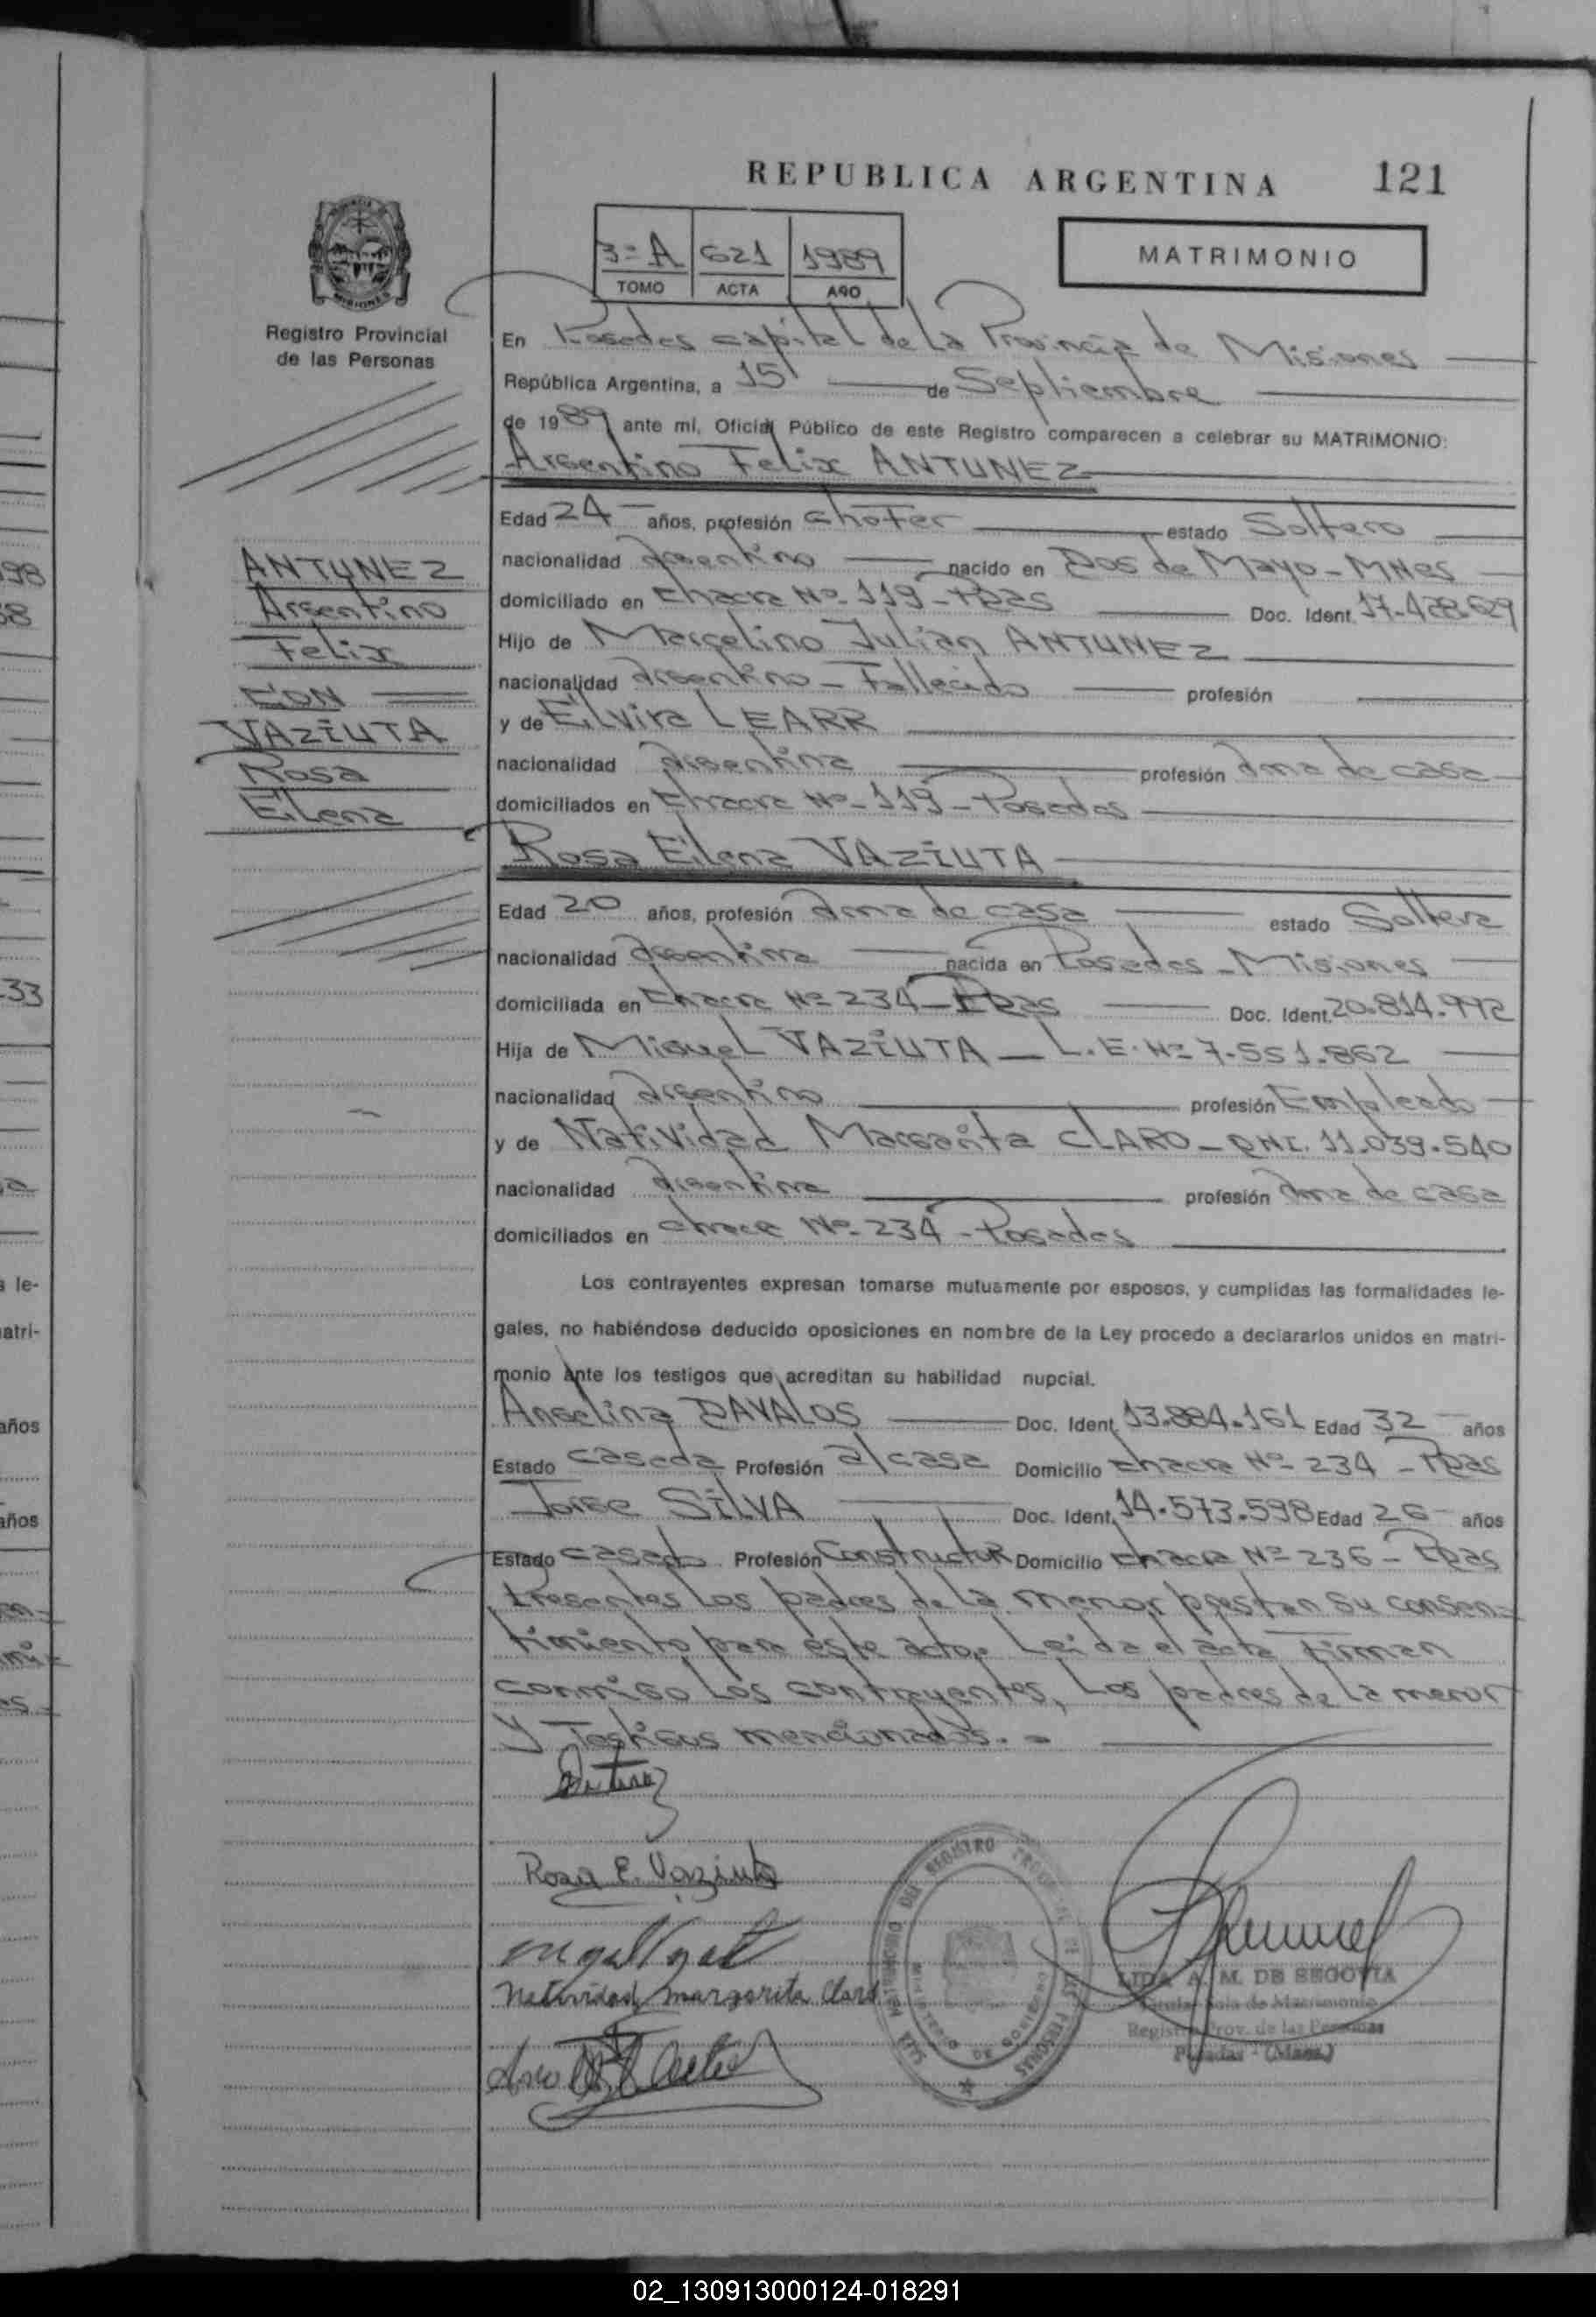 REPUBLICA ARGENTINA 121
MATRIMONIO
3=A 621 1989
TOMO ACTA AÑO
PROVINCIA DE MISIONES
Registro Provincial
de las Personas
En Posadas capital de la Provincia de Misiones
República Argentina, a 15 de Septiembre
de 1989 ante mí, Oficial Público de este Registro comparecen a celebrar su MATRIMONIO:
Argentino Felix ANTUNEZ
Edad 24 años, profesión chofer estado Soltero
nacionalidad argentino nacido en Dos de Mayo - MNes
domiciliado en chacra Nº 119 - Pdas Doc. Ident. 17.428.629
Hijo de Marcelino Julián ANTUNEZ
nacionalidad argentino - Fallecido profesión
y de Elvira LEARR
nacionalidad argentina profesión ama de casa
domiciliados en chacra Nº 119 - Posadas
Rosa Elena VAZIUTA
Edad 20 años, profesión ama de casa estado Soltera
nacionalidad argentina nacida en Posadas - Misiones
domiciliada en chacra Nº 234 - Pdas Doc. Ident. 20.814.992
Hija de Miguel VAZIUTA - L.E. Nº 7.551.862
nacionalidad argentino profesión Empleado
y de Natividad Margarita CLARO - DNI. 11.039.540
nacionalidad argentina profesión ama de casa
domiciliados en chacra Nº 234 - Posadas
Los contrayentes expresan tomarse mutuamente por esposos, y cumplidas las formalidades le-
gales, no habiéndose deducido oposiciones en nombre de la Ley procedo a declararlos unidos en matri-
monio ante los testigos que acreditan su habilidad nupcial.
Angelina DAVALOS Doc. Ident. 13.884.161 Edad 32 años
Estado casada Profesión a/casa Domicilio chacra Nº 234 - Pdas
Jorge SILVA Doc. Ident. 14.573.598 Edad 26 años
Estado casado Profesión Constructor Domicilio chacra Nº 236 - Pdas
Presentes los padres de la menor prestan su consen=
timiento para este acto. Leida el acta Firman
conmigo los contrayentes, los padres de la menor
y Testigos mencionados. =
ANTUNEZ
Argentino
Felix
CON
VAZIUTA
Rosa
Elena
Rosa E. Vaziuta
Natividad Margarita Claro
LIDA A. M. DE SEGOVIA
Titular Sala de Matrimonio
Registro Prov. de las Personas
Posadas - (Mnes.)
SALA MATRIMONIO DEL REGISTRO PROVINCIAL DE LAS PERSONAS
MINISTERIO DE GOBIERNO
02_130913000124-018291